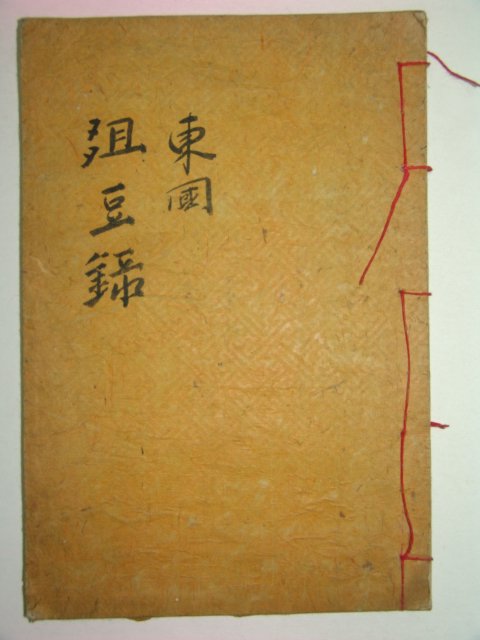 東國
俎豆錄